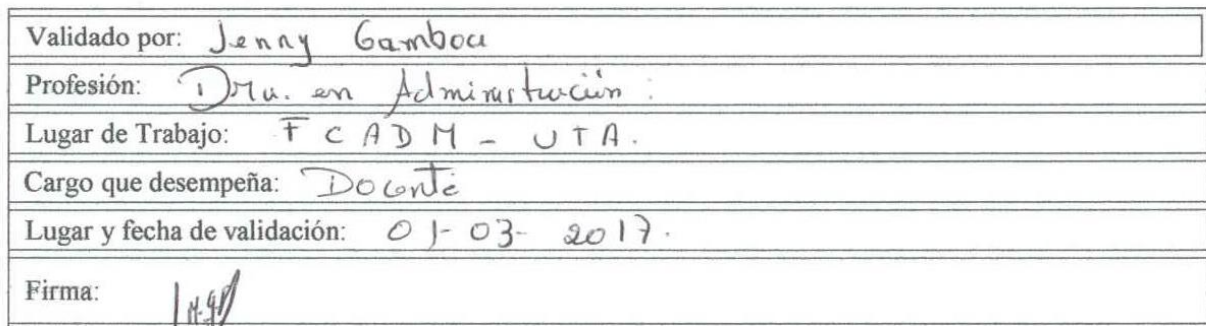 Validado por: Jenny Gamboa
Profesión: Dra. en Administración.
Lugar de Trabajo: FCADM - UTA.
Cargo que desempeña: Docente
Lugar y fecha de validación: 01-03-2017.
Firma: